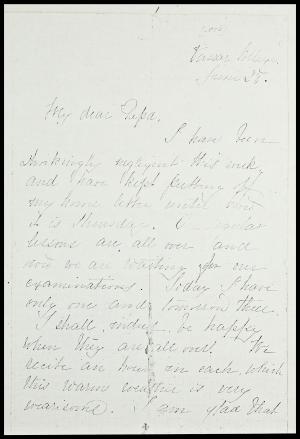 Vassar College,
June 25.
My dear Papa,
I have been
shockingly negligent this week,
and have kept putting off
my home letter until now
it is Thursday.
lessons are all over and
now we are waiting for our
examinations. Today I have
only one and tomorrow three.
I shall indeed be happy
when they are all over. We
recite an hour in each, which
this warm weather is very
wearisome. I am glad that